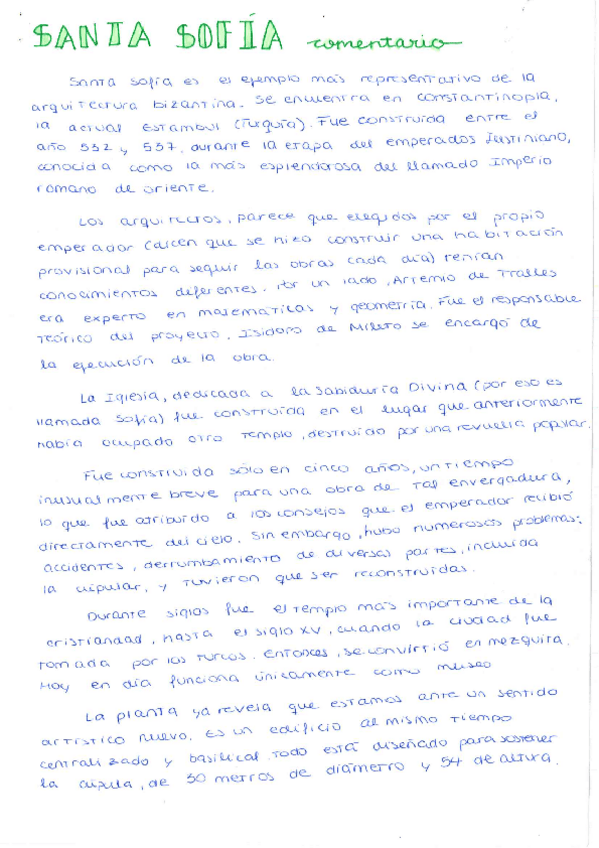 SANTA SOFÍA comentario
Santa Sofía es el ejemplo más representativo de la
arquitectura bizantina. Se encuentra en Constantinopla,
la actual Estambul (Turquía). Fue construida entre el
año 532 y 537, durante la etapa del emperados Justiniano,
conocida como la más esplendorosa del llamado Imperio
romano de oriente.
Los arquitectos, parece que elegidos por el propio
emperador (dicen que se hizo construir una habitación
provisional para seguir las obras cada día) tenían
conocimientos diferentes. Por un lado, Artemio de Tralles
era experto en matemáticas y geometría. Fue el responsable
teórico del proyecto, Isidoro de Mileto se encargó de
la ejecución de la obra.
La Iglesia, dedicada a la Sabiduría Divina (por eso es
llamada Sofía) fue construida en el lugar que anteriormente
había ocupado otro templo, destruido por una revuelta popular.
Fue construida sólo en cinco años, un tiempo
inusualmente breve para una obra de tal envergadura,
lo que fue atribuido a los consejos que el emperador recibió
directamente del cielo. Sin embargo, hubo numerosos problemas:
accidentes, derrumbamiento de diversas partes, incluida
la cúpular, y tuvieron que ser reconstruidas.
Durante siglos fue el templo más importante de la
cristiandad, hasta el siglo XV, cuando la ciudad fue
tomada por los turcos. Entonces, se convirtió en mezquita.
Hoy en día funciona únicamente como museo
La planta ya revela que estamos ante un sentido
artístico nuevo. Es un edificio al mismo tiempo
centralizado y basilical. Todo está diseñado para sostener
la cúpula, de 30 metros de diámetro y 54 de altura.